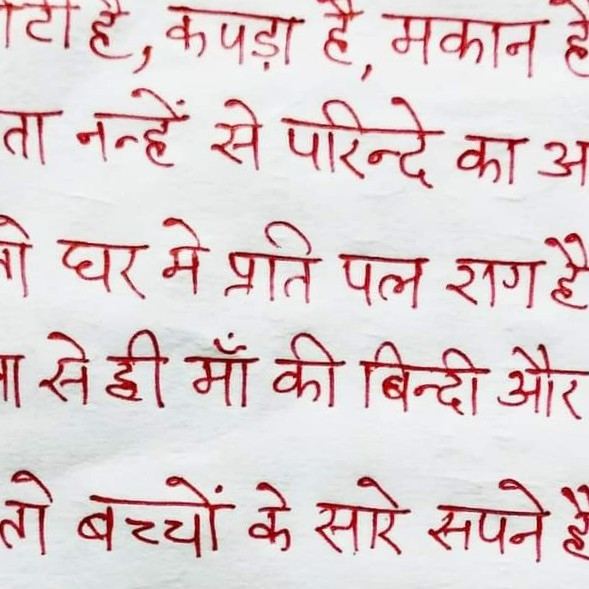 टी है, कपड़ा है, मकान है
ता नन्हें से परिन्दे का अ
तो घर मे प्रति पल राग है
पा से ही माँ की बिन्दी और
तो बच्चों के सारे सपने है